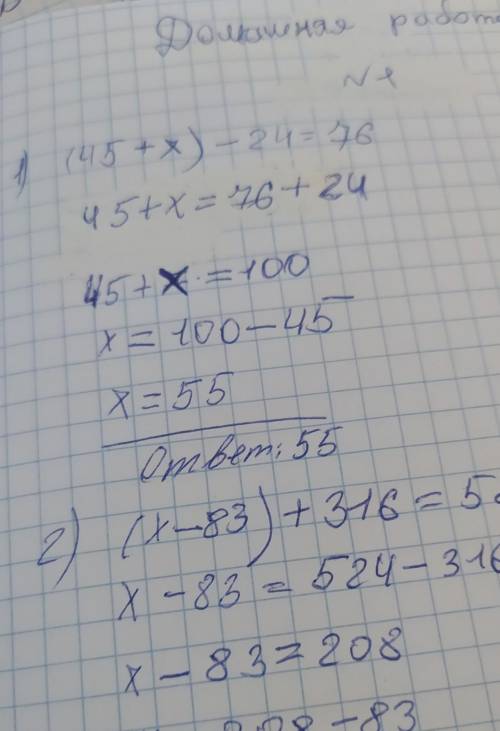 Домашная работа
№1
1) (45+x)-24=76
45+x=76+24
45+x=100
x=100-45
x=55
Ответ: 55
2) (x-83)+316=5
x-83=524-316
x-83=208
208-83